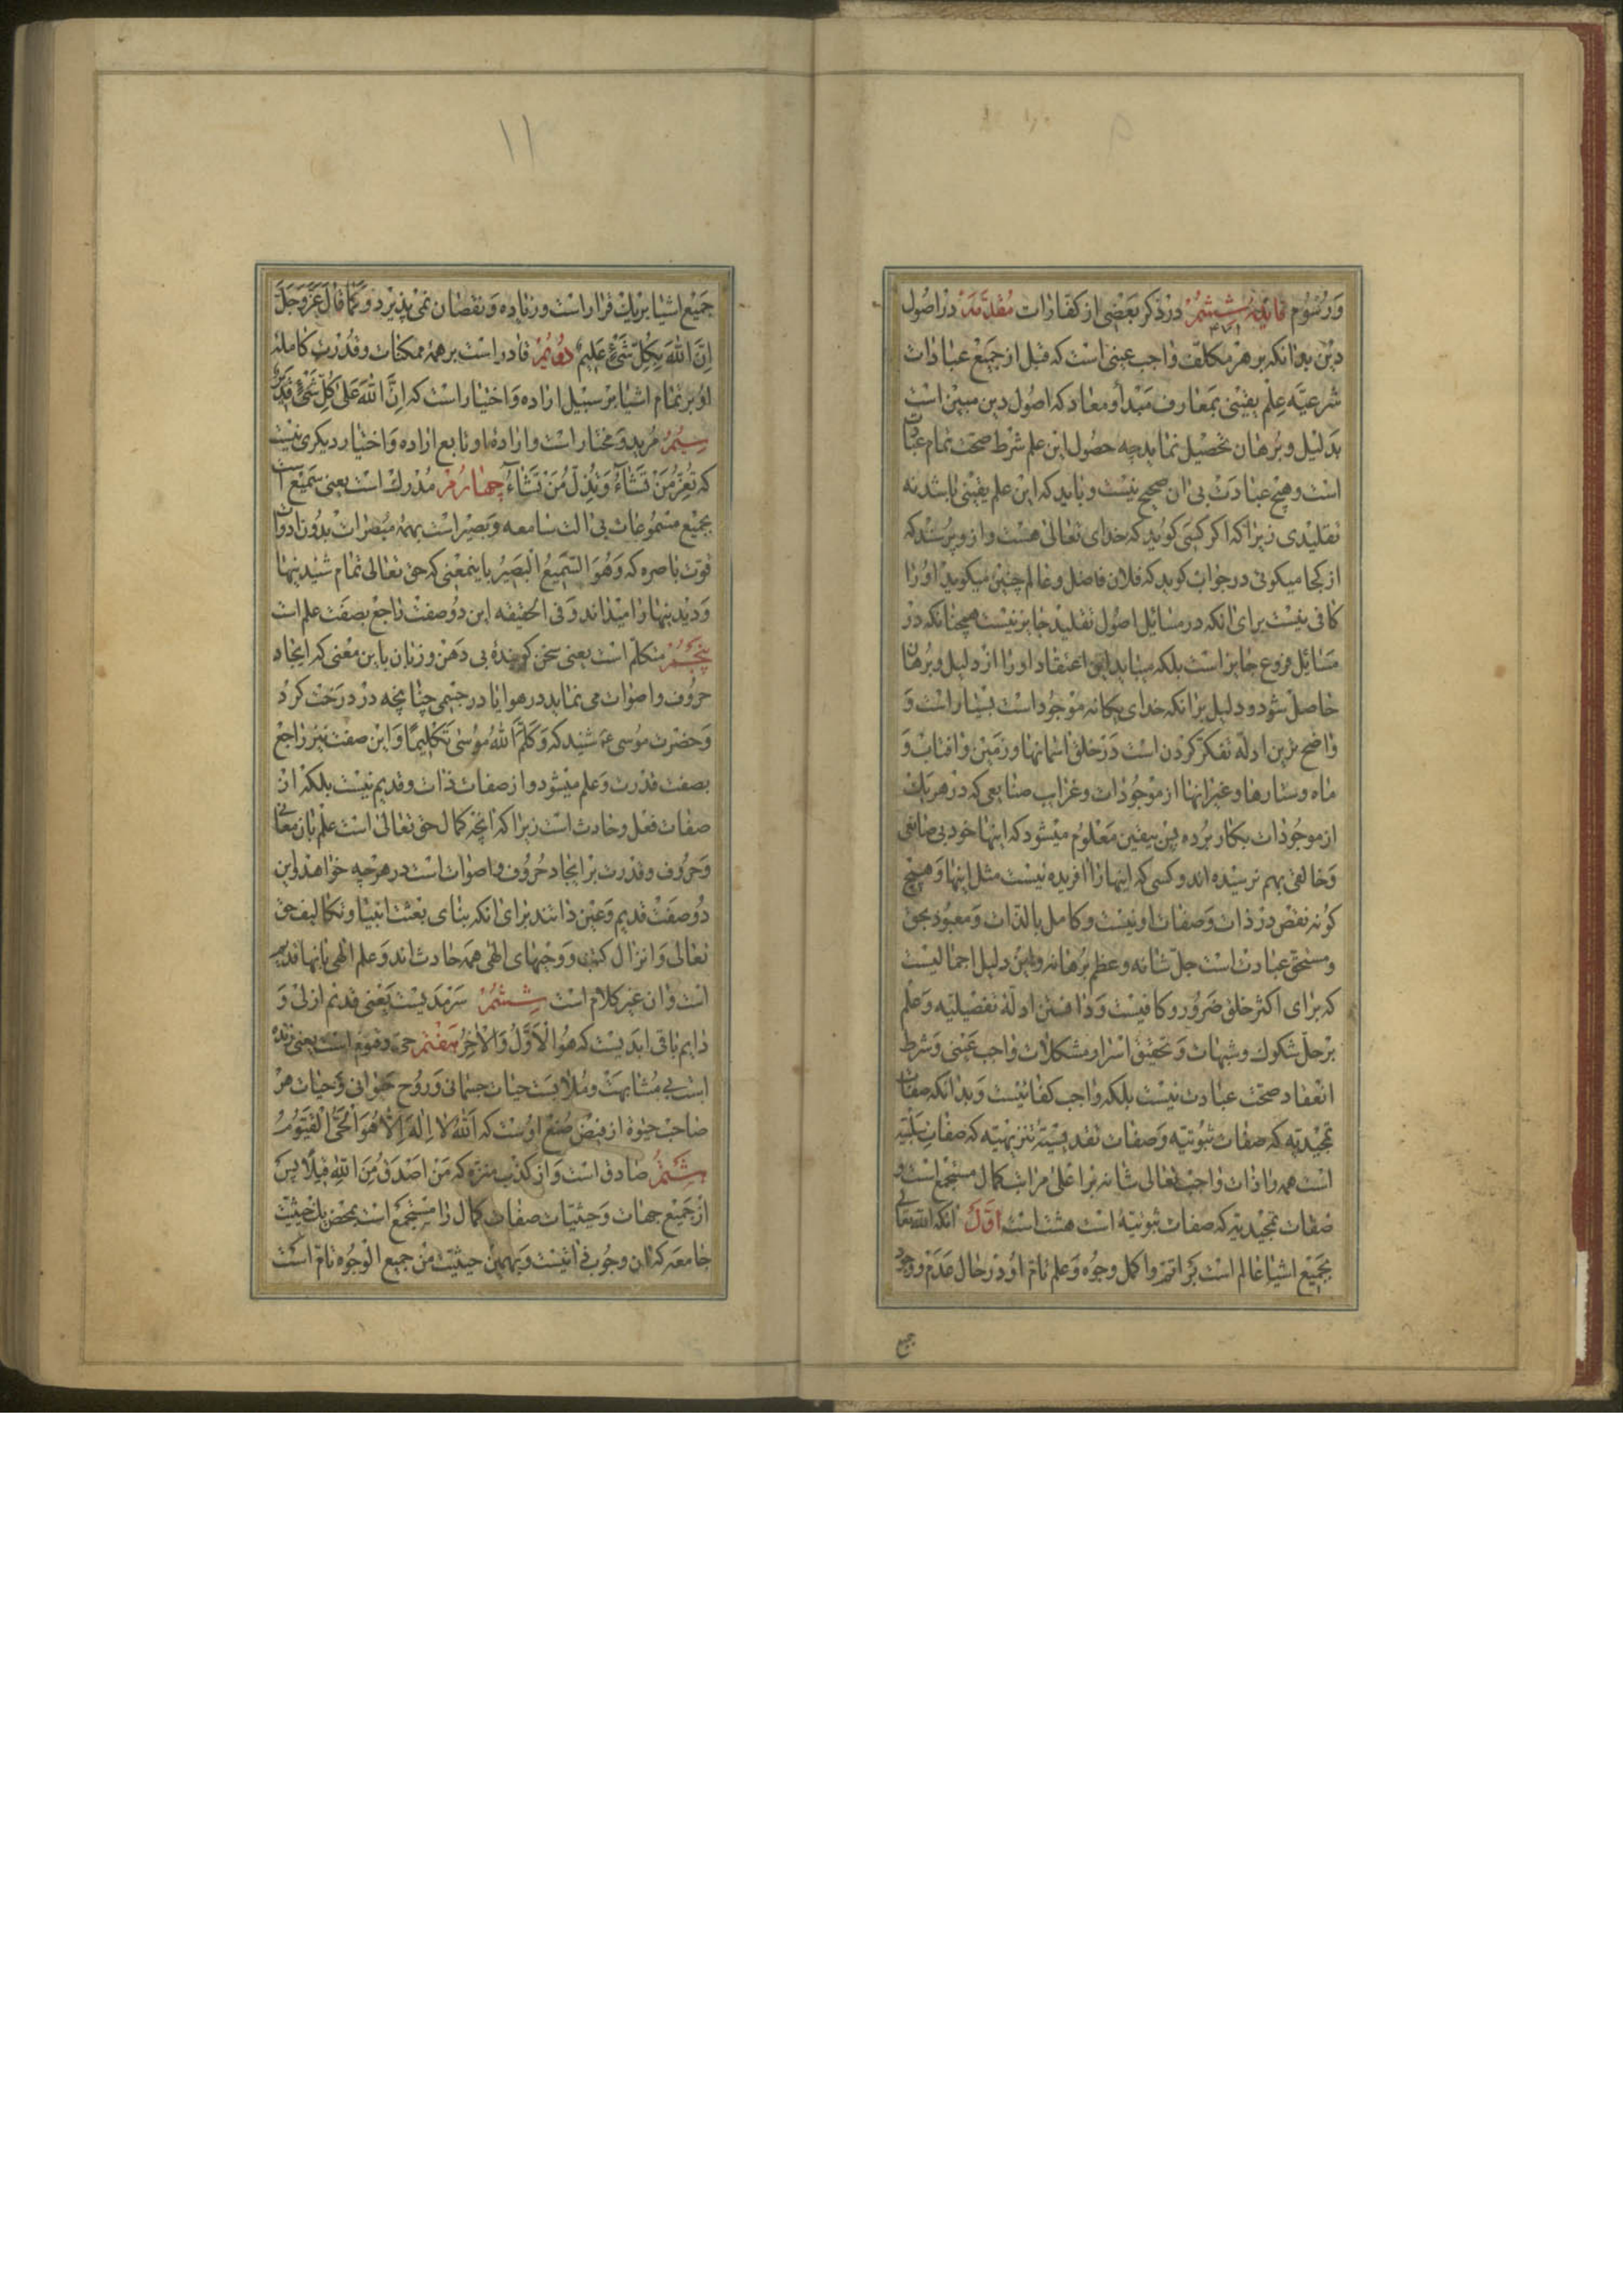 وَرُسُوم فایدهٔ ششم در ذکر بعضی از کفارات مقدمه در اصول
دین بدانکه بر هر مکلف واجب عینی است که قبل از جمیع عبادات
شرعیّه علم یقینی بمعارف مبدأ و معاد که اصول دین مبین است
بدلیل و برهان تحصیل نماید چه حصول این علم شرط صحت تمام عبادات
است و هیچ عبادت بی ان صحیح نیست و باید که این علم یقینی باشد نه
تقلیدی زیرا که اکر کسی کوید که خدای تعالی هست و ازو پرسند که
از کجا میکوئی در جواب کوید که فلان فاضل و عالم چنین میکوید اورا
کافی نیست برای انکه در مسائل اصول تقلید جایز نیست همچنانکه در
مسائل فروع جایز است بلکه میباید این اعتقاد اورا از دلیل و برهان
حاصل شود و دلیل برانکه خدای یکانه موجود است بسیار است و
واضح ترین ادله تفکر کردن است در خلق اسمانها و زمین و افتاب و
ماه و ستارها و غیر انها از موجودات و غرایب صنایعی که در هر یک
از موجودات بکار برده پس بیقین معلوم میشود که اینها خود بی صانعی
و خالقی بهم نرسیده اند و کسی که اینها را افریده نیست مثل اینها و هیچ
کونه نقص در ذات و صفات او نیست و کامل بالذات و معبود بحق
و مستحق عبادت است جل شانه و عظم برهانه و این دلیل اجمالیست
که برای اکثر خلق ضرور و کافیست و دانستن ادلهٔ تفصیلیه و علم
بر حل شکوک و شبهات و تحقیق اسرار و مشکلات واجب عینی و شرط
انعقاد صحت عبادت نیست بلکه واجب کفائیست و بدانکه صفات
تمجیدیه که صفات ثبوتیه و صفات تقدیسیّهٔ تنزیهیّه که صفات سلبیّه
است همه را ذات واجب تعالی شانه بر اعلی مراتب کمال مستجمع است و
صفات تمجیدیه که صفات ثبوتیه است هشت است اوّل انکه الله تعالی
بجمیع اشیا عالم است بر اتم و اکمل وجوه و علم تام او در حال عدم و وجود
جمیع
١١
جمیع اشیا بر یک قرار است و زیاده و نقصان نمی پذیرد و کما قال عزّ وجلّ
اِنَّ اللّٰهَ بِکُلِّ شَیْءٍ عَلیمٌ دویم قادر است بر همهٔ ممکنات و قدرت کامله
او بر تمام اشیا بر سبیل اراده و اختیار است که اِنَّ اللّٰهَ عَلیٰ کُلِّ شَیْءٍ قَدیرٌ
سیم مرید و مختار است و ارادهٔ او تابع اراده و اختیار دیکری نیست
که تُعِزُّ مَنْ تَشاءُ وَ تُذِلُّ مَنْ تَشاءُ چهارم مدرک است یعنی سمیع است
بجمیع مسموعات بی الت سامعه و بصیر است بهمهٔ مبصرات بدون ادوات
قوت باصره که وَهُوَ السَّمیعُ الْبَصیرُ باینمعنی که حق تعالی تمام شنیدنیها
و دیدنیها را میداند و فی الحقیقه این دو صفت راجع بصفت علم است
پنجم متکلّم است یعنی سخن کوینده بی دهن و زبان باین معنی که ایجاد
حروف و اصوات می نماید در هوا یا در جسمی چنانچه در درخت کرد
و حضرت موسی ع شنید که وَ کَلَّمَ اللّٰهُ مُوسیٰ تَکْلیمًا و این صفت نیز راجع
بصفت قدرت و علم میشود و از صفات ذات و قدیم نیست بلکه از
صفات فعل و حادث است زیرا که انچه کمال حق تعالی است علم بان معانی
و حروف و قدرت بر ایجاد حروف و اصوات است در هر چه خواهد و این
دو صفت قدیم و عین ذاتند برای انکه بنای بعثت انبیا و تکالیف حق
تعالی و انزال کتب و وحیهای الهی همه حادث اند و علم الهی بانها قدیم
است و ان غیر کلام است ششم سرمدیست یعنی قدیم ازلی و
دایم باقی ابدیست که هُوَ الْاَوَّلُ وَالْاٰخِرُ هفتم حی و قیوم است یعنی زنده
است بی مشابهت و ملابست حیات جسمانی و روح حیوانی و حیات هر
صاحب حیوة از فیض صنع اوست که اَللّٰهُ لٰا اِلٰهَ اِلّٰا هُوَ الْحَیُّ الْقَیُّومُ
هشتم صادق است و از کذب منزه که مَنْ اَصْدَقُ مِنَ اللّٰهِ قیلًا پس
از جمیع جهات و حیثیات صفات کمال را مستجمع است بمحض یک حیثیت
جامعه که ان وجوب ذاتیست و بهمین حیثیت من جمیع الوجوه تام است